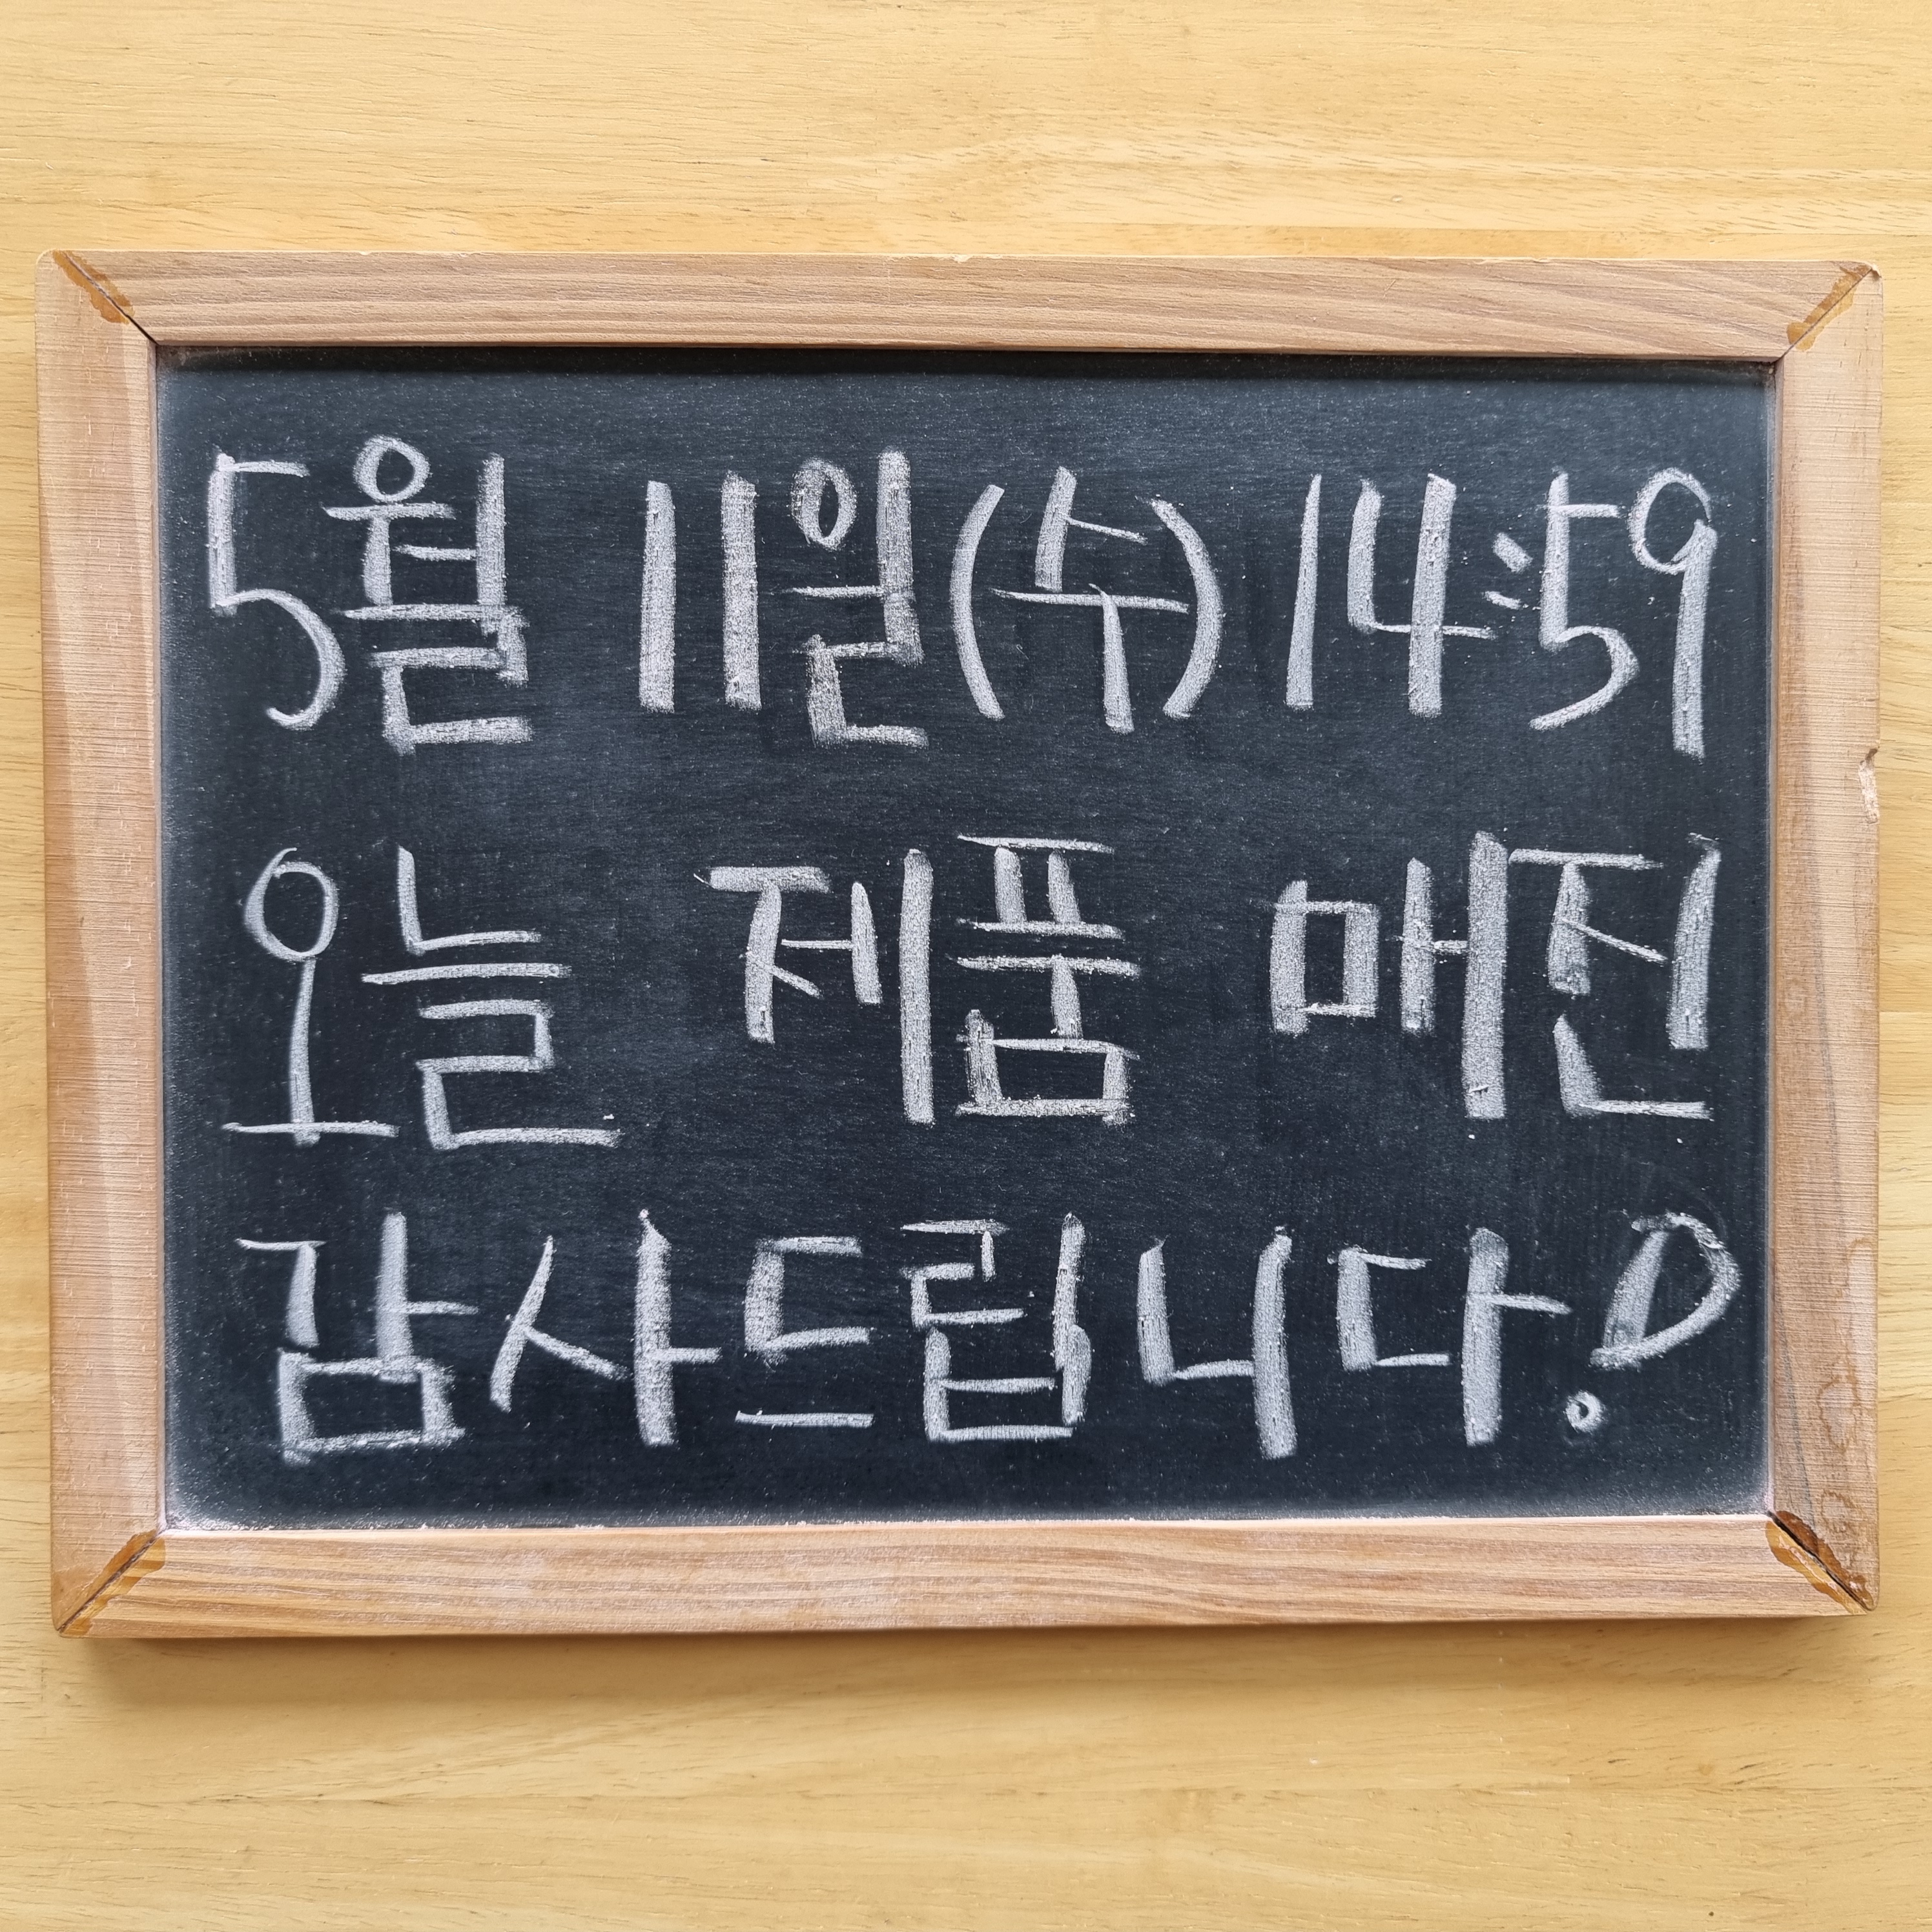 5월 11일(수) 14:59
오늘 제품 매진
감사드립니다!